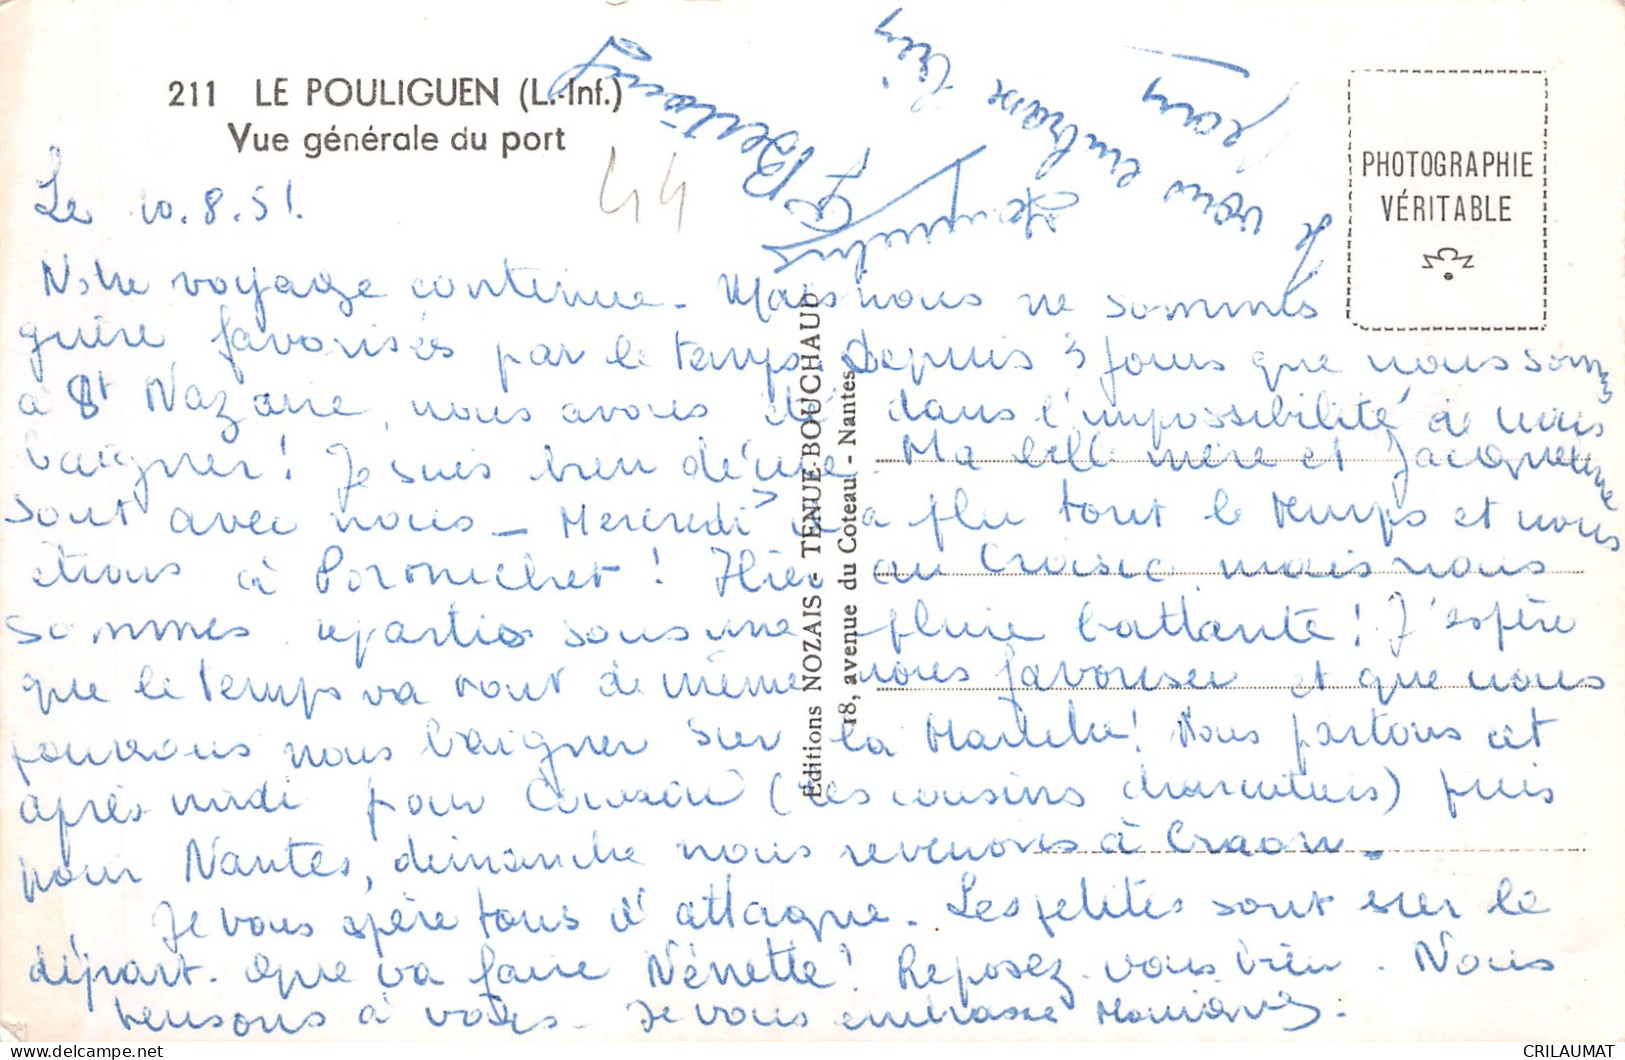 211 LE POULIGUEN (L.-Inf.)
Vue générale du port
44
PHOTOGRAPHIE
VÉRITABLE
Éditions NOZAIS - TENUE-BOUCHAUD
18, avenue du Coteau - Nantes
Le 10.8.51.
Notre voyage continue - Mais nous ne sommes
guère favorisés par le temps. Depuis 3 jours que nous sommes
à St Nazaire, nous avons été dans l'impossibilité de nous
baigner! Je suis bien déçue - Ma belle mère et Jacqueline
sont avec nous - Mercredi il a plu tout le temps et nous
étions à Pornichet! Hier au Croisic mais nous
sommes repartis sous une pluie battante! J'espère
que le temps va tout de même nous favoriser et que nous
pourrons nous baigner sur la Manche! Nous partons cet
après midi pour (Les cousins charcutiers) puis
pour Nantes, dimanche nous revenons à Craon -
Je vous espère tous d'attaque. Les petites sont sur le
départ. Que va faire Nénette! Reposez-vous bien. Nous
pensons à vous - Je vous embrasse Monique.
Je vous embrasse bien
Jean